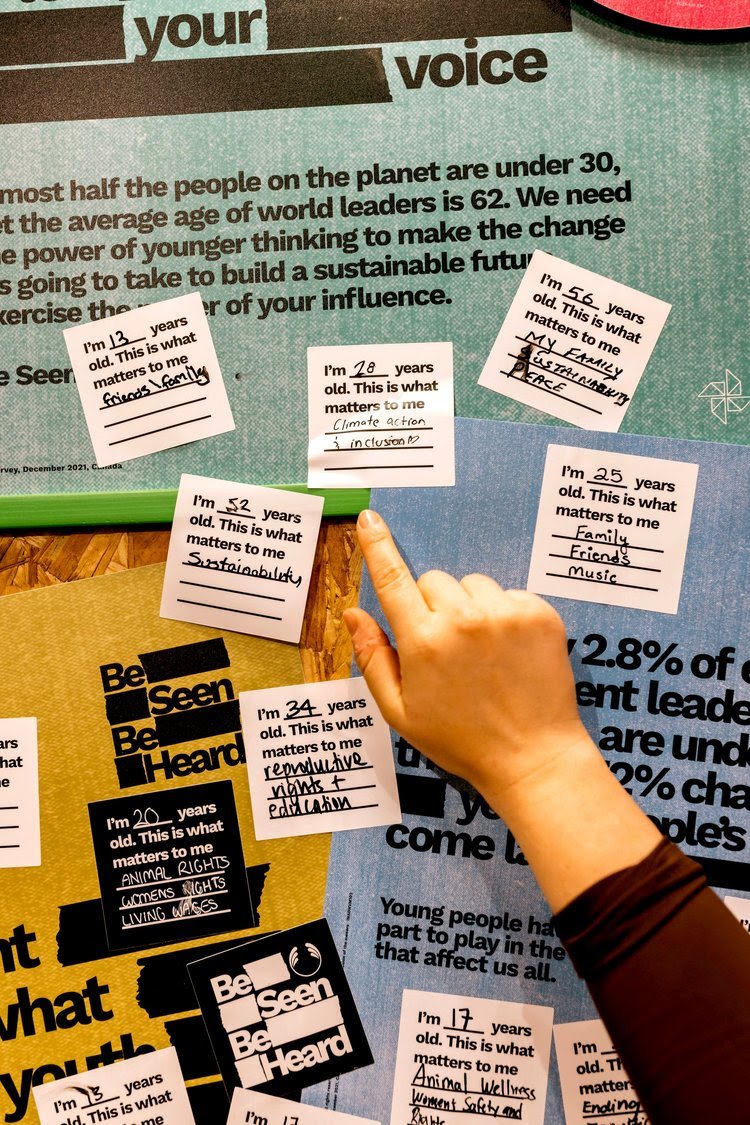 your
voice
most half the people on the planet are under 30,
et the average age of world leaders is 62. We need
e power of younger thinking to make the change
s going to take to build a sustainable futu
xercise the er of your influence.
e Seen
rvey, December 2021, Canada
I'm 13 years
old. This is what
matters to me
friends\family
I'm 28 years
old. This is what
matters to me
Climate action
& inclusion♡
I'm 56 years
old. This is what
matters to me
MY FAMILY
SUSTAINABILITY
PEACE
I'm 52 years
old. This is what
matters to me
Sustainability
I'm 25 years
old. This is what
matters to me
Family
Friends
Music
Be
Seen
Be
Heard
I'm 34 years
old. This is what
matters to me
reproductive
rights +
education
ars
hat
e
I'm 20 years
old. This is what
matters to me
ANIMAL RIGHTS
WOMENS RIGHTS
LIVING WAGES
y 2.8% of
ent leade
are und
2% cha
ople's
come l
Young people ha
part to play in the
that affect us all.
nt
what
youth
Be
Seen
Be
Heard
I'm 17 years
old. This is what
matters to me
Animal Wellness
Women Safety and
Rights
I'm
old. Th
matter
Ending
I'm 13 years
old. This is what
matters to me
I'm 17 years